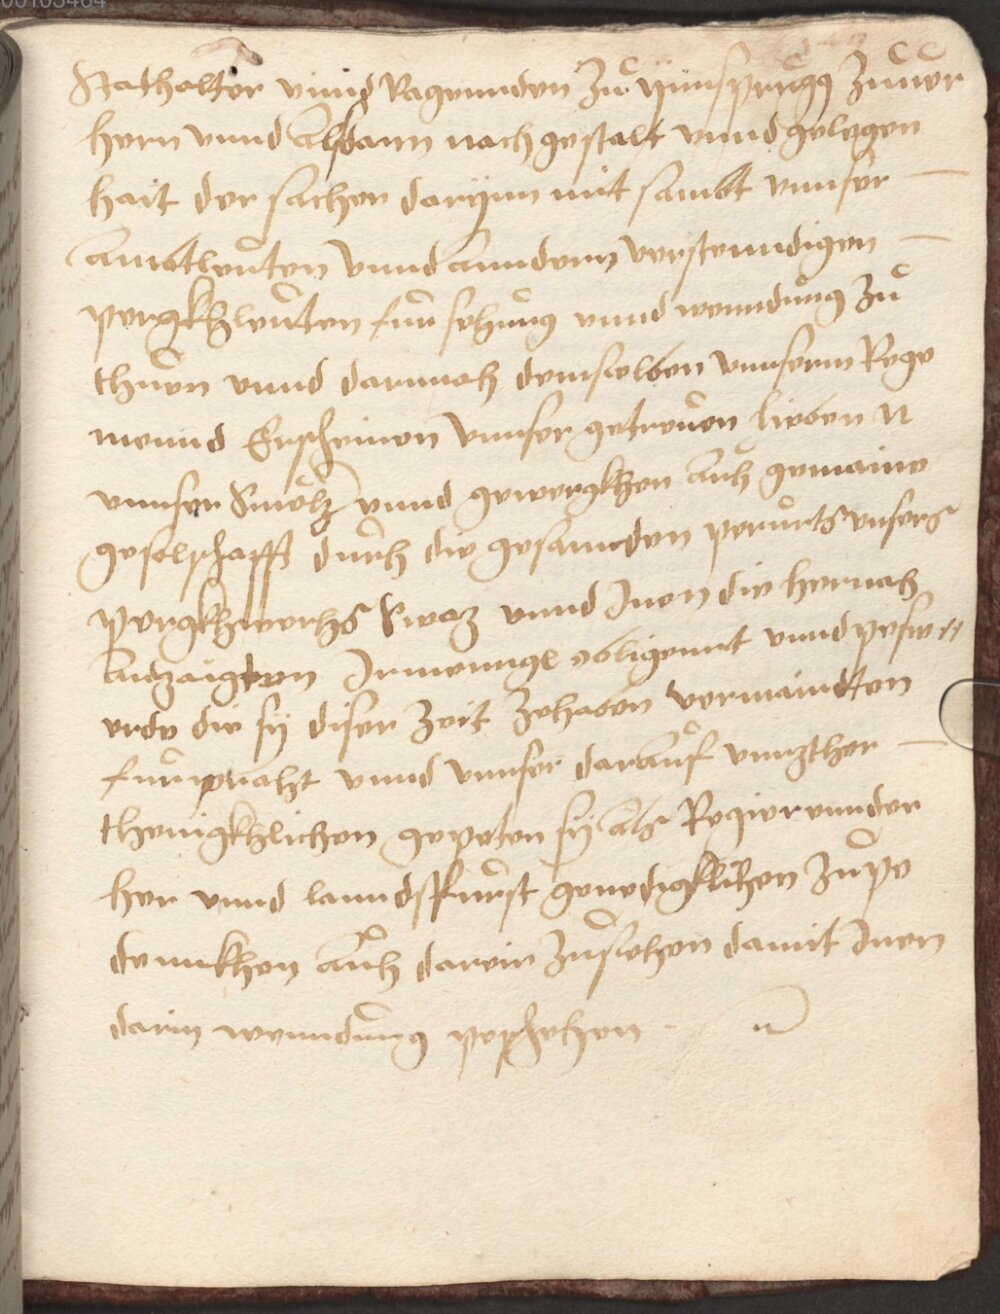 00105464
Stathalter vnnd Regennden Zu ynnsprugg Zuuer
horn vnnd Alsdann nach gestalt vnnd gelegen
hait der sachen darynn mit sambt vnnser
Ambtleuten vnnd anndern verstenndigen
pergkhleuten fursehung vnnd wenndung Zu
thuen vnnd darnnach demselben vnnserm Rege
mennd Erscheinen vnnser getreuen lieben N
vnnser Smeltz vnnd gewergkhen auch gemaine
geselschafft durch die gesannden perurts vnsers
pergkhwerchs Swaz vnnd Inen die hernach
Anzaigten Irrmenngl obligennt vnnd peswer
erde die sy diser Zeit Zehaben vermaindten
furpracht vnnd vnnser darauf vnnzther
thenigkhlichen gepeten sy als Regierennder
her vnnd lanndsfurst genedigklichen Zupe
dennkhen auch darein Zusehen damit Inen
darin wenndung peschehen